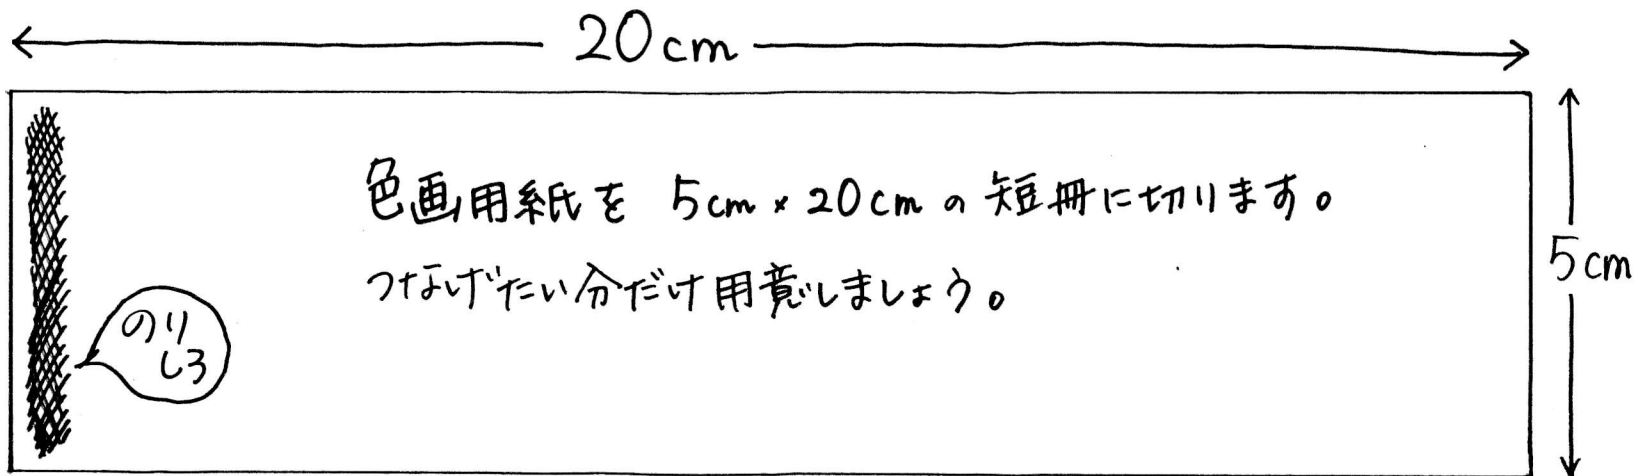 20cm
色画用紙を 5cm×20cmの短冊に切ります。
つなげたい分だけ用意しましょう。
5cm
のり
しろ